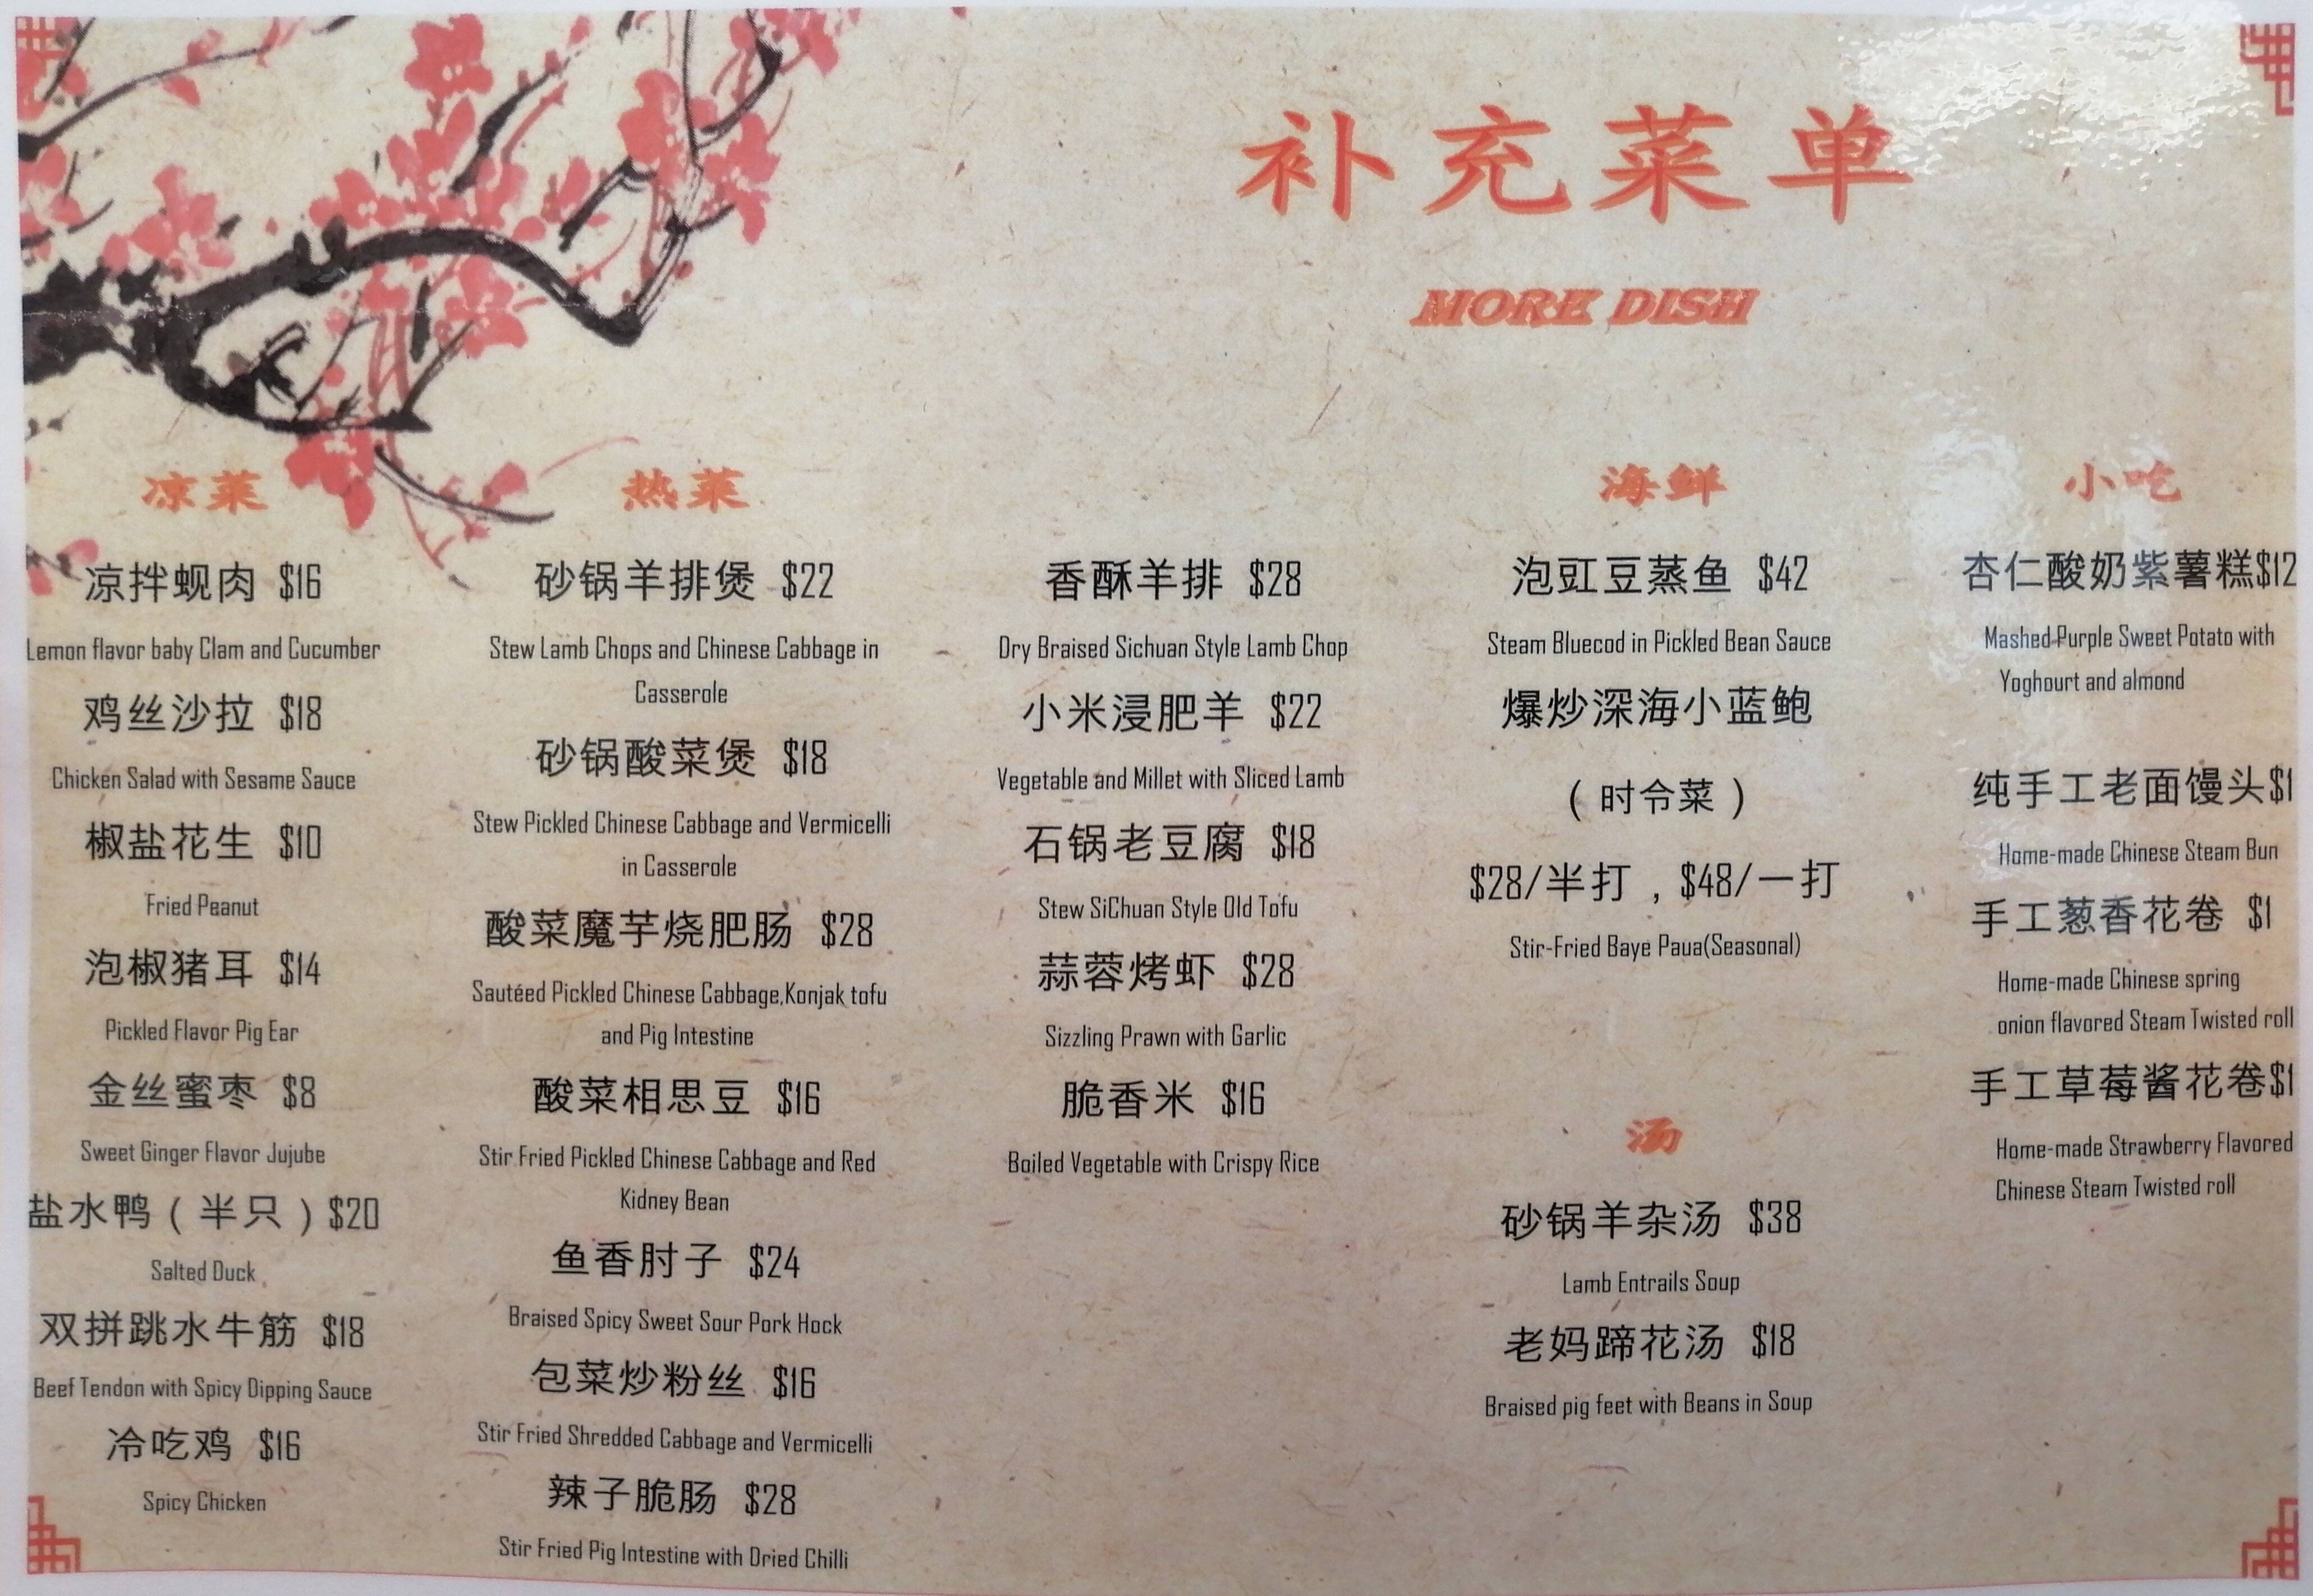 补充菜单
MORE DISH
凉菜
凉拌蚬肉 $16
Lemon flavor baby Clam and Cucumber
鸡丝沙拉 $18
Chicken Salad with Sesame Sauce
椒盐花生 $10
Fried Peanut
泡椒猪耳 $14
Pickled Flavor Pig Ear
金丝蜜枣 $8
Sweet Ginger Flavor Jujube
盐水鸭（半只）$20
Salted Duck
双拼跳水牛筋 $18
Beef Tendon with Spicy Dipping Sauce
冷吃鸡 $16
Spicy Chicken
热菜
砂锅羊排煲 $22
Stew Lamb Chops and Chinese Cabbage in
Casserole
砂锅酸菜煲 $18
Stew Pickled Chinese Cabbage and Vermicelli
in Casserole
酸菜魔芋烧肥肠 $28
Sautéed Pickled Chinese Cabbage,Konjak tofu
and Pig Intestine
酸菜相思豆 $16
Stir Fried Pickled Chinese Cabbage and Red
Kidney Bean
鱼香肘子 $24
Braised Spicy Sweet Sour Pork Hock
包菜炒粉丝 $16
Stir Fried Shredded Cabbage and Vermicelli
辣子脆肠 $28
Stir Fried Pig Intestine with Dried Chilli
香酥羊排 $28
Dry Braised Sichuan Style Lamb Chop
小米浸肥羊 $22
Vegetable and Millet with Sliced Lamb
石锅老豆腐 $18
Stew SiChuan Style Old Tofu
蒜蓉烤虾 $28
Sizzling Prawn with Garlic
脆香米 $16
Boiled Vegetable with Crispy Rice
海鲜
泡豇豆蒸鱼 $42
Steam Bluecod in Pickled Bean Sauce
爆炒深海小蓝鲍
（时令菜）
$28/半打，$48/一打
Stir-Fried Baye Paua(Seasonal)
汤
砂锅羊杂汤 $38
Lamb Entrails Soup
老妈蹄花汤 $18
Braised pig feet with Beans in Soup
小吃
杏仁酸奶紫薯糕$12
Mashed Purple Sweet Potato with
Yoghourt and almond
纯手工老面馒头$1
Home-made Chinese Steam Bun
手工葱香花卷 $1
Home-made Chinese spring
onion flavored Steam Twisted roll
手工草莓酱花卷$1
Home-made Strawberry Flavored
Chinese Steam Twisted roll